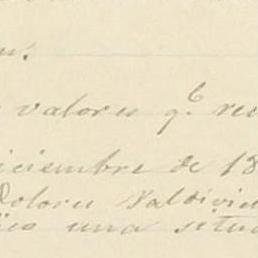 valores q.e rec
iciembre de 18
Dolores Valdivie
una situa